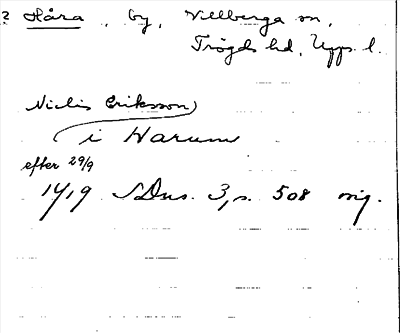 2 Håra, by, Villberga sn,
Trögds hd, Upps. l.
Niclis Eriksson
i Harum
efter 29/9
1419 SDns. 3, s. 508 orig.